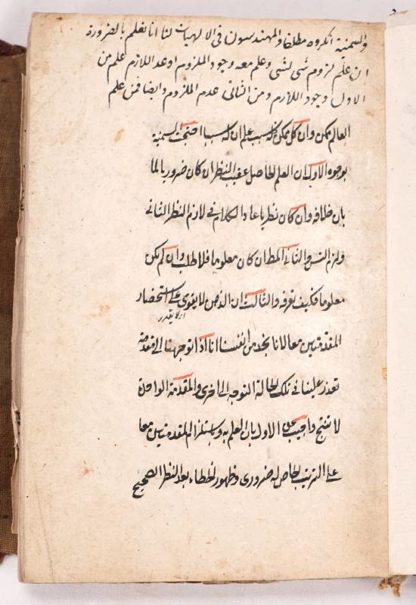 والسمنية انكروه مطلقا والمهندسون في الالهيات لنا انا نعلم بالضرورة
ان من علم لزوم شئ لشئ وعلم معه وجود الملزوم او عدم اللازم علم من
الاول وجود اللازم ومن الثاني عدم الملزوم وايضا فمن علم
ان العالم ممكن وان كل ممكن فله سبب علم ان له سببا احتجت السمنية
بوجوه الاول ان العلم الحاصل عقيب النظر ان كان ضروريا لما
بان خلافه وان كان نظريا عاد الكلام في لازم النظر الثاني
ولزم التسلسل الثاني المطلوب ان كان معلوما فلا طلب وان لم يكن
معلوما فكيف يعرف والثالث ان الذهن لا يقوى على استحضار
المقدمتين معا لانا نجد من انفسنا انا اذا توجهنا الى مقدمة
تعذر علينا في تلك الحالة التوجه الى اخرى والمقدمة الواحدة
لا تنتج واجيب عن الاول بان العلم به وباستلزام المقدمتين معا
على الترتيب الخاص له ضروري وظهور الخطاء بعد النظر الصحيح